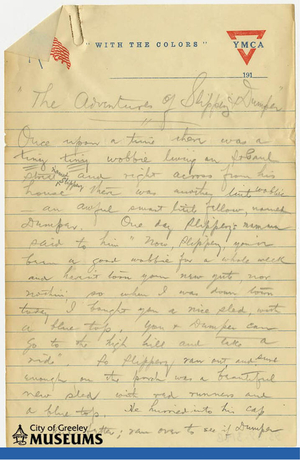 "WITH THE COLORS"
YMCA
191
"The Adventures of Slippery & Dumper"
Once upon a time there was a
tiny tiny wobbie living on St Paul
street named Slippery and right across from his
house there was another little wobbie
— an awful smart little fellow, named
Dumper. One day Slippery's mamma
said to him "Now, Slippery, you've
been a good wobbie for a whole week
and hasn't torn your new suit, nor
nothin' so when I was down town
today I bought you a nice sled with
a blue top. You & Dumper can
go to the high hill and take a
ride" So Slippery ran out and sure
enough on the porch was a beautiful
new sled with red runners and
a blue top. He hurried into his cap
ran over to see if Dumper
City of Greeley
MUSEUMS